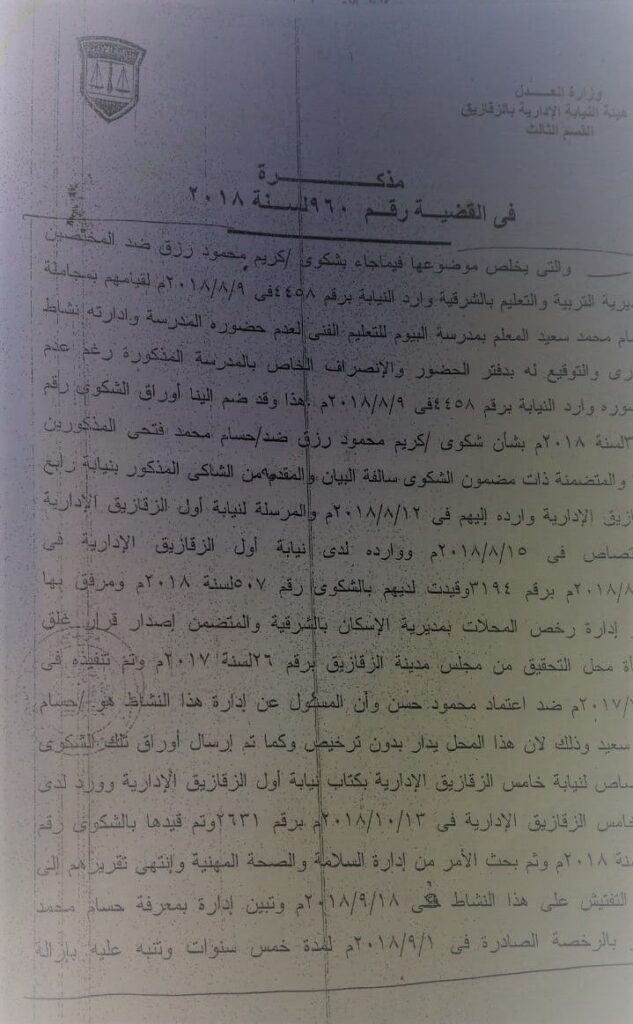 وزارة العــدل
هيئة النيابة الإدارية بالزقازيق
القسم الثالث
مذكــــــــرة
فى القضيــة رقـم ٩٦٠ لسـنة ٢٠١٨
والتى يخلص موضوعها فيماجاء بشكوى /كريم محمود رزق ضد المختصين
ديرية التربية والتعليم بالشرقية وارد النيابة برقم ٤٤٥٨فى ٢٠١٨/٨/٩م لقيامهم بمجاملة
ام محمد سعيد المعلم بمدرسة البيوم للتعليم الفنى لعدم حضوره المدرسة وادارته نشاط
رى والتوقيع له بدفتر الحضور والإنصراف الخاص بالمدرسة المذكورة رغم عدم
وره وارد النيابة برقم ٤٤٥٨فى ٢٠١٨/٨/٩م .هذا وقد ضم الينا أوراق الشكوى رقم
٣لسنة ٢٠١٨م بشأن شكوى /كريم محمود رزق ضد/حسام محمد فتحى المذكورين
والمتضمنة ذات مضمون الشكوى سالفة البيان والمقدمه من الشاكى المذكور بنيابة رابع
ازيق الإدارية وارده إليهم فى ٢٠١٨/٨/١٢م والمرسلة لنيابة أول الزقازيق الإدارية
تصاص فى ٢٠١٨/٨/١٥م ووارده لدى نيابة أول الزقازيق الإدارية فى
٢٠١٨/٨م برقم ٣١٩٤وقيدت لديهم بالشكوى رقم ٥٠٧لسنة ٢٠١٨م ومرفق بها
إدارة رخص المحلات بمديرية الإسكان بالشرقية والمتضمن إصدار قرار غلق
أة محل التحقيق من مجلس مدينة الزقازيق برقم ٢٦لسنة ٢٠١٧م وتم تنفيذه فى
٢٠١٧م ضد اعتماد محمود حسن وأن المسئول عن إدارة هذا النشاط هو /حسام
سعيد وذلك لان هذا المحل يدار بدون ترخيص وكما تم إرسال أوراق تلك الشكوى
صاص لنيابة خامس الزقازيق الإدارية بكتاب نيابة أول الزقازيق الإدارية وورد لدى
خامس الزقازيق الإدارية فى ٢٠١٨/١٠/١٣م برقم ٢٦٣١وتم قيدها بالشكوى رقم
سنة ٢٠١٨م وثم بحث الأمر من إدارة السلامة والصحة المهنية وإنتهى تقريرهم الى
التفتيش على هذا النشاط فى ٢٠١٨/٩/١٨م وتبين إدارة بمعرفة حسام محمد
بالرخصة الصادرة فى ٢٠١٨/٩/١م لمدة خمس سنوات وتنبه عليه بإزالة